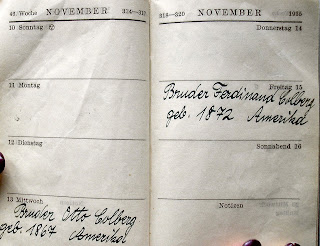 46/Woche NOVEMBER 314—317
10 Sonntag
11 Montag
12 Dienstag
13 Mittwoch
Bruder Otto Colberg
geb. 1867 Amerika
318—320 NOVEMBER 1935
Donnerstag 14
Freitag 15
Bruder Ferdinand Colberg
geb. 1872 Amerika
Sonnabend 16
Notizen